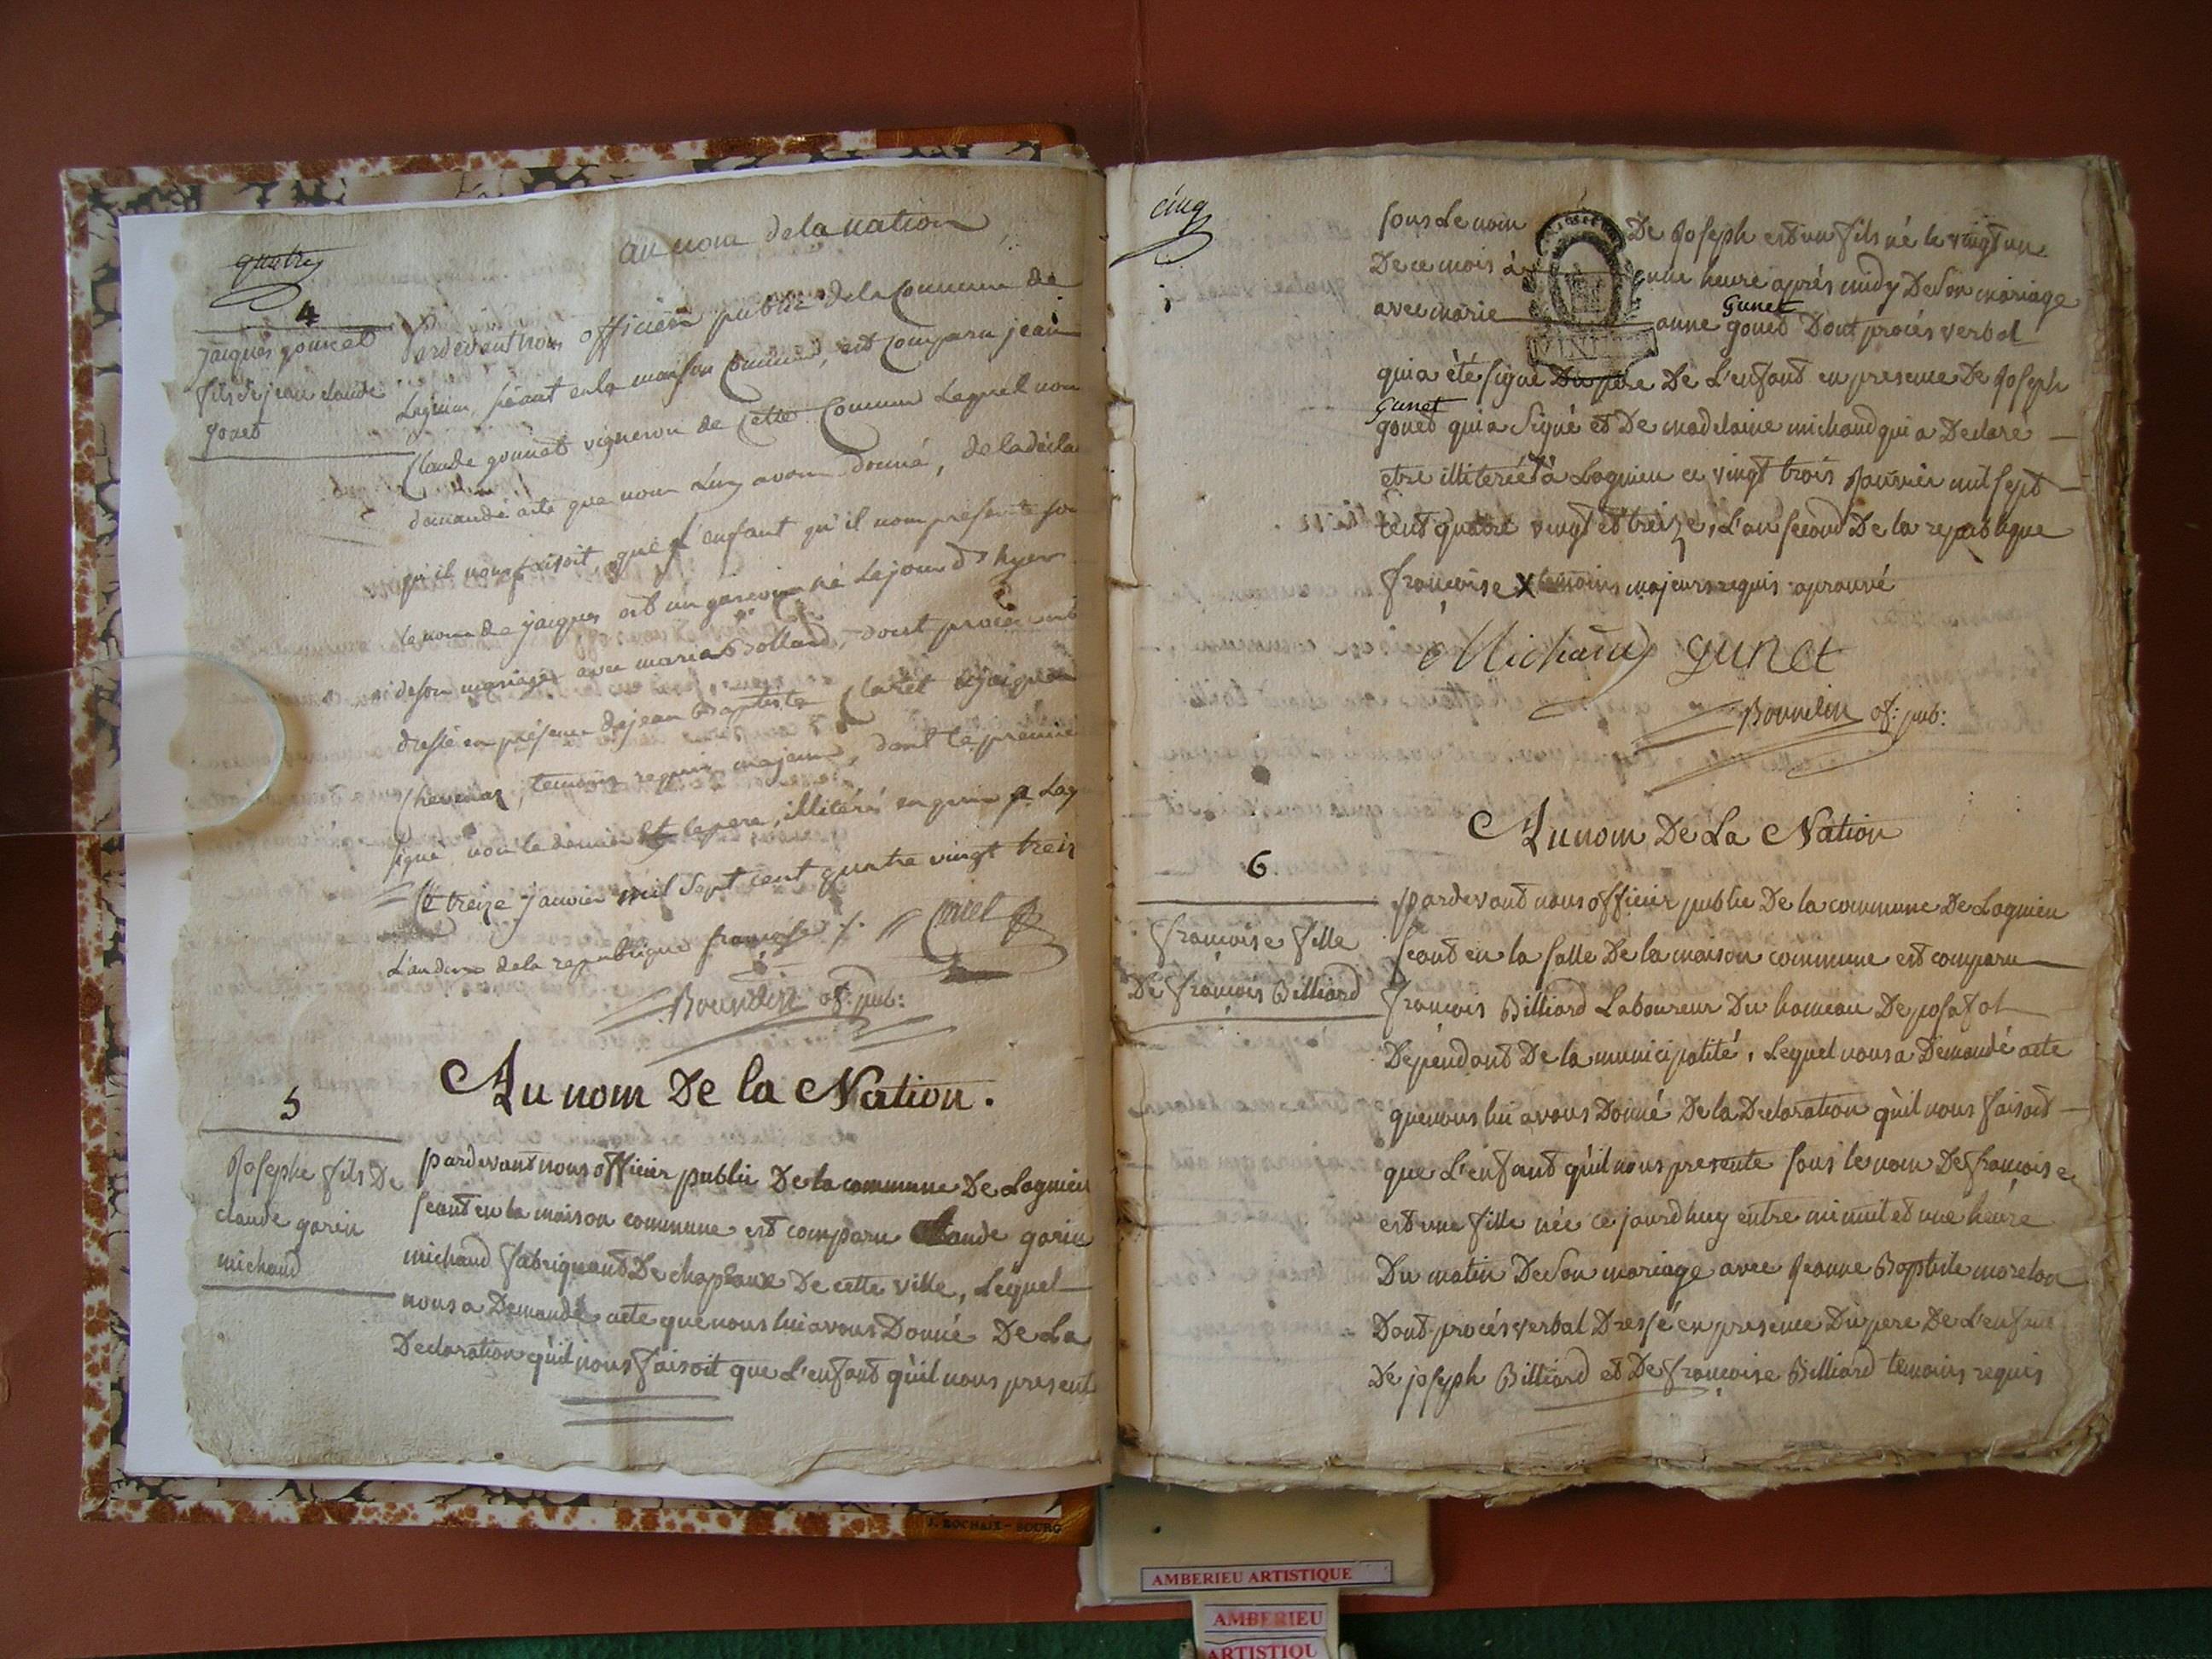 quatre
au nom de la nation
4
jacques gonnet
fils de jean claude
gonet
Pardevant nous officier public de la Commune de
Lagnieu, séant en la maison Commune, est Comparu jean
Claude gonnet vigneron de Cette Commune Lequel nous
demandé acte que nous Luy avons donné, de la décla
qu'il nous faisoit, que L'enfant qu'il nous présente sou
le nom de jacques est un garcon né Le jour d'hyer
de son mariage avec marie Bolland, dont procès verb
dressé en présence de jean Baptiste Claret et jacques
Chevenas, temoins requis majeurs, dont le premier
signé non le dernier et le pere, illitérés enquis a Lag
Ce treize janvier mil sept cent quatre vingt treiz
L'an deux de la republique françoise ./. Claret
Bourdin of: pub:
Au nom De la Nation.
5
Josephe fils De
claude garin
michaud
pardevant nous officier public De la commune De Lagnieu
seant en la maison commune est comparu Claude garin
michaud fabriquant De chapeaux De cette ville, Lequel
nous a Demandé acte que nous lui avons Donné De La
Declaration qu'il nous faisoit que L'enfant qu'il nous present
J. ROCHAIX - BOURG
cinq
sous Le nom De Joseph est un fils né le vingt un
De ce mois à une heure aprés midy De Son mariage
avec marie anne gonet Gunet Dont procés verbal
qui a été signé Du pere De L'enfant en presence De Joseph
Gunet
gonet qui a Signé et De madelaine michaud qui a Declaré
etre illiterée à Lagnieu ce vingt trois Janvier mil sept
cent quatre vingt et treize, L'an second De la republique
françoise X temoins majeurs requis aprouvé
Michaud gunet
Bourdin of: pub:
Au nom De La Nation
6
françoise fille
De françois Billiard
pardevant nous officier public De la commune De Lagnieu
seant en la salle De la maison commune est comparu
françois Billiard Laboureur Du hameau De posafol
Dépendant De la municipalité, Lequel nous a Demandé acte
que nous lui avons Donné De la Declaration qu'il nous faisoit
que L'enfant qu'il nous presente sous le nom De françoise
est une fille née ce jourd'huy entre minuit et une heure
Du matin De Son mariage avec Jeanne Baptiste morelon
Dont procés verbal Dressé en presence Du pere De L'enfant
De joseph Billiard et De françoise Billiard temoins requis
AMBERIEU ARTISTIQUE
AMBERIEU
ARTISTIQU